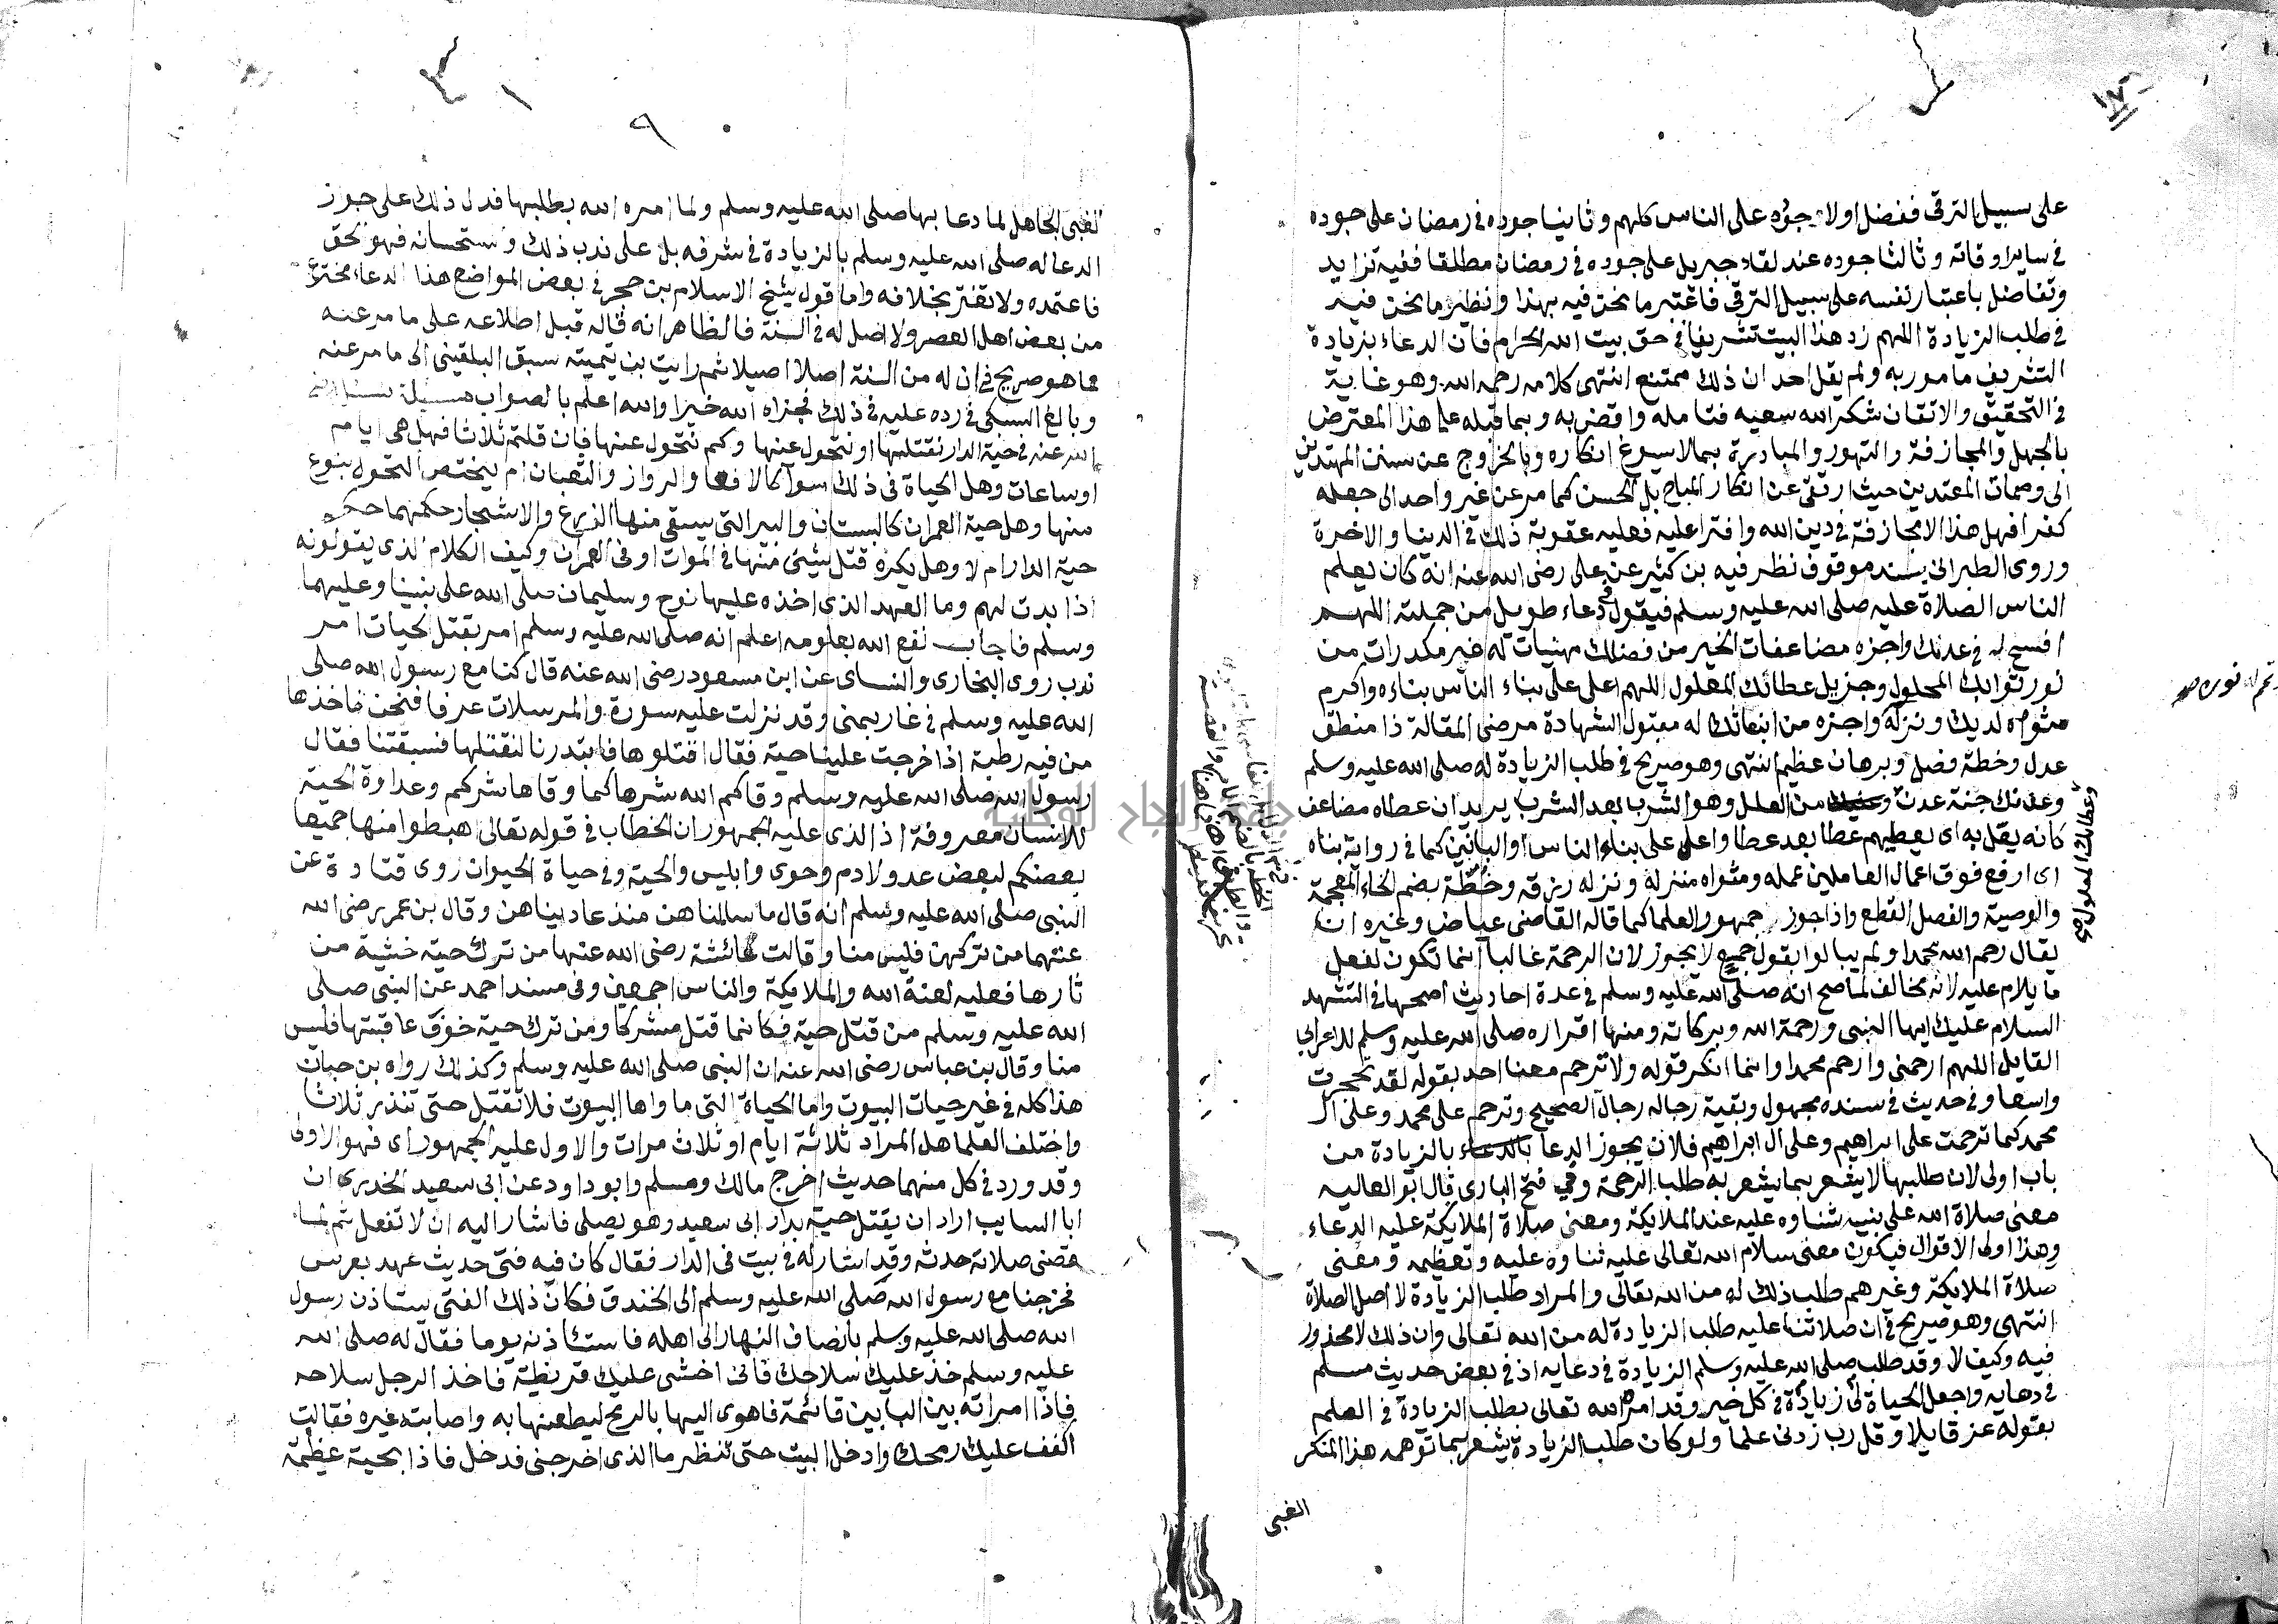 على سبيل الترقى ففضل اولا جوده على الناس كلهم وثانيا جوده فى رمضان على جوده
فى ساير اوقاته وثالثا جوده عند لقاء جبريل على جوده فى رمضان مطلقا ففيه تزايد
وتفاضل باعتبار نفسه على سبيل الترقى فاعتبر ما نحن فيه بهذا ونظير ما نحن فيه
فى طلب الزيادة اللهم زد هذا البيت تشريفا فى حق بيت الله الحرام فان الدعاء بزيادة
التشريف مامور به ولم يقل احد ان ذلك ممتنع انتهى كلامه رحمه الله وهو غاية
فى التحقيق والاتقان شكر الله سعيه فتامله واقض به وبما قبله على هذا المعترض
بالجهل والمجازفة والتهور والمبادرة بما لا يسوغ انكاره وبالخروج عن سنن المهتدين
الى وصمات المعتدين حيث ارتقى عن انكار المباح بل الحسن كما مر عن غير واحد الى جعله
كفرا فهل هذا الا مجازفة فى دين الله وافترا عليه فعليه عقوبة ذلك فى الدنيا والاخرة
وروى الطبرانى بسند موقوف نظر فيه بن كثير عن على رضى الله عنه انه كان يعلم
الناس الصلاة عليه صلى الله عليه وسلم فيقول فى دعاء طويل من جملته اللهم
افسح له فى عدنك واجزه مضاعفات الخير من فضلك مهنيات له غير مكدرات من
نور ثوابك المحلول وجزيل عطائك المعلول اللهم اعلى على بناء الناس بناءه واكرم
مثواه لديك ونزله واجزه من ابتعاثك له مقبول الشهادة مرضى المقالة ذا منطق
عدل وخطة فضل وبرهان عظيم انتهى وهو صريح فى طلب الزيادة له صلى الله عليه وسلم
وعدنك جنة عدن من العلل وهو الشرب بعد الشرب يريد ان عطاه مضاعف
كانه يعل به اى يعطيهم عطا بعد عطا واعلى على بناء الناس او البانين كما فى رواية بناه
اى ارفع فوق اعمال العاملين عمله ومثواه منزله ونزله رزقه وخطة بضم الخاء المعجمة
والوصية والفصل القطع واذا جوز جمهور العلما كما قاله القاضى عياض وغيره ان
يقال رحم الله محمدا ولم يبالوا بقول جمع لا يجوز لان الرحمة غالبا انما تكون لفعل
ما يلام عليه لانه مخالف لما صح انه صلى الله عليه وسلم فى عدة احاديث اصحها فى التشهد
السلام عليك ايها النبى ورحمة الله وبركاته ومنها اقراره صلى الله عليه وسلم للاعرابى
القايل اللهم ارحمنى وارحم محمدا وانما انكر قوله ولا ترحم معنا احد بقوله لقد تحجرت
واسعا وفى حديث فى سنده مجهول وبقية رجاله رجال الصحيح وترحم على محمد وعلى ال
محمد كما ترحمت على ابراهيم وعلى ال ابراهيم فلان يجوز الدعا بالزيادة من
باب اولى لان طلبها لا يشعر بما يشعر به طلب الرحمة وفى فتح البارى قال ابو العاليه
معنى صلاة الله على نبيه ثناوه عليه عند الملايكة ومعنى صلاة الملايكة عليه الدعاء
وهذا اولى الاقوال فيكون معنى سلام الله تعالى عليه ثناوه عليه وتعظيمه ومعنى
صلاة الملايكة وغيرهم طلب ذلك له من الله تعالى والمراد طلب الزيادة لا اصل الصلاة
انتهى وهو صريح فى ان صلاتنا عليه طلب الزيادة له من الله تعالى وان ذلك لا محذور
فيه وكيف لا وقد طلب صلى الله عليه وسلم الزيادة فى دعايه اذ فى بعض حديث مسلم
فى دعايه واجعل الحياة لى زيادة فى كل خير وقد امره الله تعالى بطلب الزيادة فى العلم
بقوله عز قايلا وقل رب زدنى علما ولو كان طلب الزيادة يشعر بما توهمه هذا المنكر
الغبى
الغبى الجاهل لما دعا بها صلى الله عليه وسلم ولما امره الله بطلبها فدل ذلك على جوز
الدعا له صلى الله عليه وسلم بالزيادة فى شرفه بل على ندب ذلك واستحسانه فهو الحق
فاعتمده ولا تغتر بخلافه واما قول شيخ الاسلام بن حجر فى بعض المواضع هذا الدعاء مخترع
من بعض اهل العصر ولا اصل له فى السنة فالظاهر انه قاله قبل اطلاعه على ما مر عنه
مما هو صريح فى ان له من السنة اصلا اصيلا ثم رايت بن تيمية سبق البلقينى الى ما مر عنه
وبالغ السبكى فى رده عليه فى ذلك فجزاه الله خيرا والله اعلم بالصواب مسئلة سئل رضى
الله عنه فى حية الدار نقتلها او نتحول عنها وكم نتحول عنها فان قلتم ثلاثا فهل هى ايام
او ساعات وهل الحياة فى ذلك سوآ كالافعا والرواز والثعبان ام يختص التحول بنوع
منها وهل حية العمران كالبستان والبير التى يسقى منها الزرع والاشجار حكمهما حكم
حية الدار ام لا وهل يكره قتل شيئ منها فى الموات او فى العمران وكيف الكلام الذى يقولونه
اذا بدت لهم وما العهد الذى اخذه عليها نوح وسليمان صلى الله على نبينا وعليهما
وسلم فاجاب نفع الله بعلومه اعلم انه صلى الله عليه وسلم امر بقتل الحيات امر
ندب روى البخارى والنساى عن ابن مسعود رضى الله عنه قال كنا مع رسول الله صلى
الله عليه وسلم فى غار بمنى وقد نزلت عليه سورة والمرسلات عرفا فنحن ناخذها
من فيه رطبة اذا خرجت علينا حية فقال اقتلوها فابتدرنا لنقتلها فسبقتنا فقال
رسول الله صلى الله عليه وسلم وقاكم الله شرها كما وقاها شركم وعداوة الحية
للانسان معروفة اذ الذى عليه الجمهور ان الخطاب فى قوله تعالى اهبطوا منها جميعا
بعضكم لبعض عدو لادم وحوى وابليس والحية وفى حياة الحيوان روى قتادة عن
النبى صلى الله عليه وسلم انه قال ما سالمناهن منذ عاديناهن وقال بن عمر رضى الله
عنهما من تركهن فليس منا وقالت عائشة رضى الله عنها من ترك حية خشية من
ثارها فعليه لعنة الله والملايكة والناس اجمعين وفى مسند احمد عن النبى صلى
الله عليه وسلم من قتل حية فكانما قتل مشركا ومن ترك حية خوف عاقبتها فليس
منا وقال بن عباس رضى الله عنه ان النبى صلى الله عليه وسلم وكذلك رواه بن حبان
هذا كله فى غير حيات البيوت واما الحياة التى ماواها البيوت فلا تقتل حتى تنذر ثلاثا
واختلف العلما هل المراد ثلاثة ايام او ثلاث مرات والاول عليه الجمهور اى فهو الاولى
وقد ورد فى كل منهما حديث اخرج مالك ومسلم وابو داود عن ابى سعيد الخدرى ان
ابا السايب اراد ان يقتل حية بدار ابى سعيد وهو يصلى فاشار اليه ان لا تفعل ثم لما
قضى صلاته حدثه وقد اشار له فى بيت فى الدار فقال كان فيه فتى حديث عهد بعرس
فخرجنا مع رسول الله صلى الله عليه وسلم الى الخندق فكان ذلك الفتى يستاذن رسول
الله صلى الله عليه وسلم بانصاف النهار الى اهله فاستاذنه يوما فقال له صلى الله
عليه وسلم خذ عليك سلاحك فانى اخشى عليك قريظة فاخذ الرجل سلاحه
فاذا امراته بين البابين قائمة فاهوى اليها بالرمح ليطعنها به واصابته غيره فقالت
اكفف عليك رمحك وادخل البيت حتى تنظر ما الذى اخرجنى فدخل فاذا بحية عظيمة